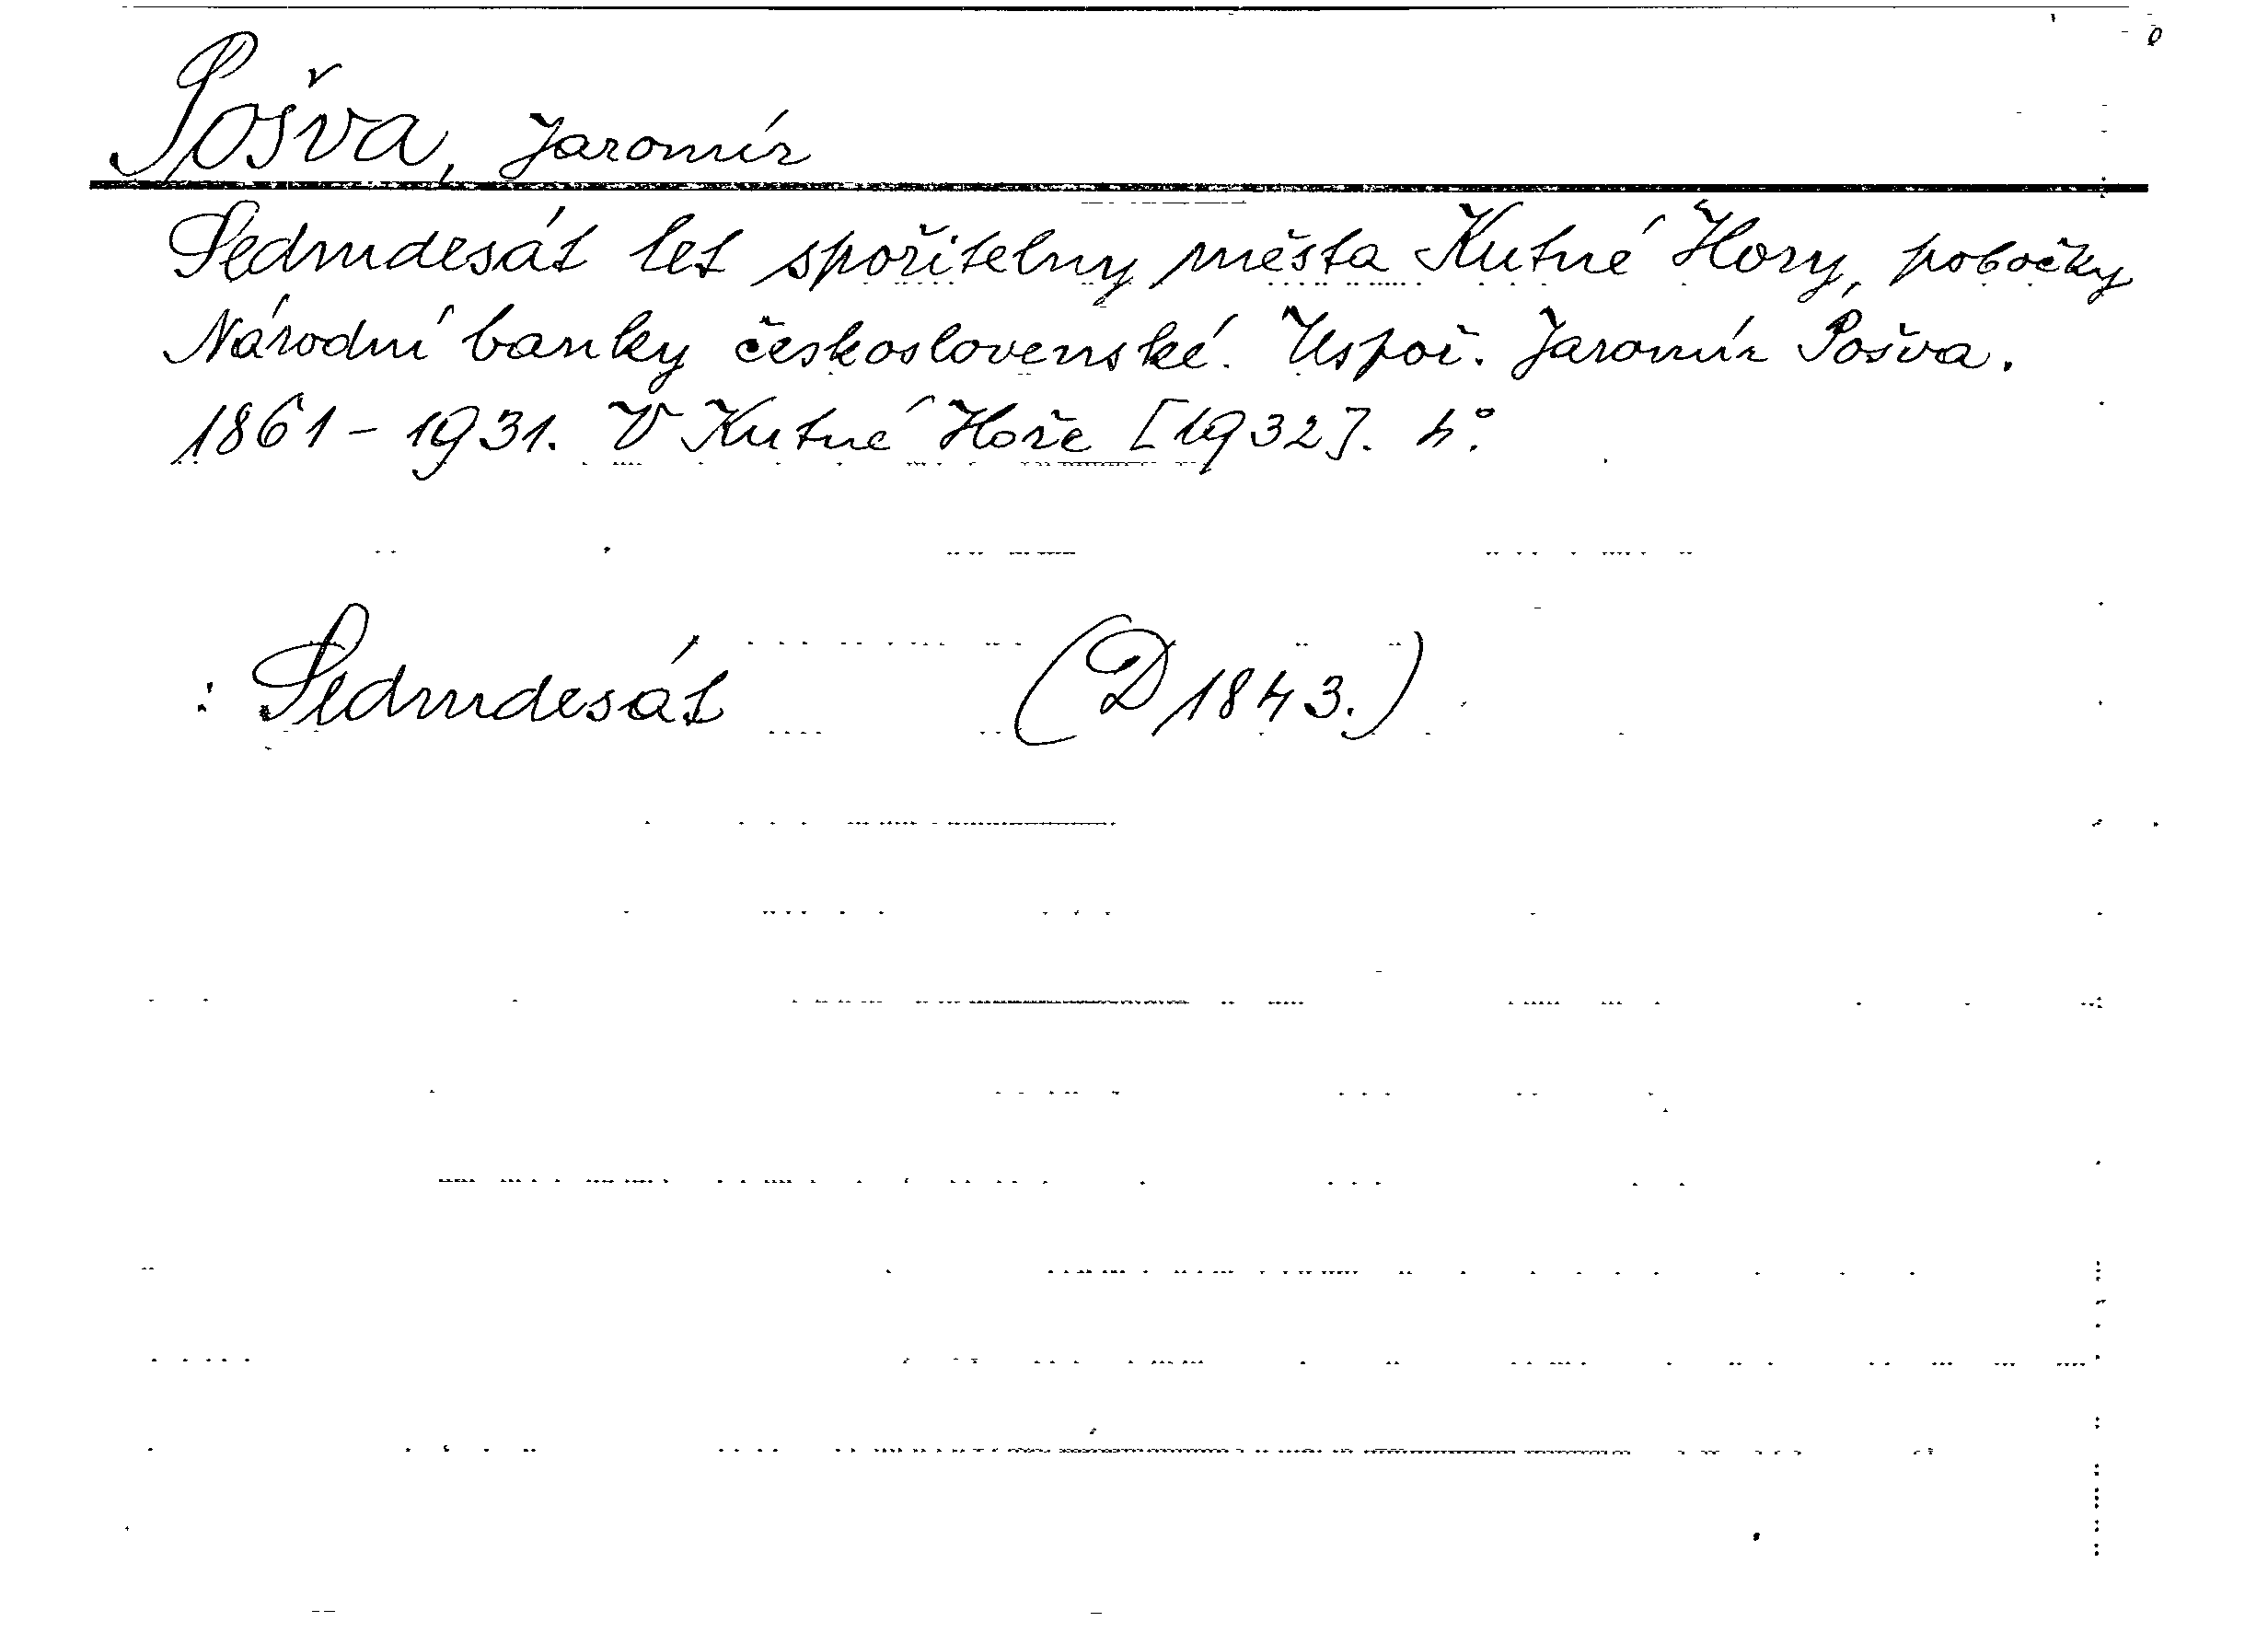 Pošva, Jaromír
Sedmdesát let spořitelny města Kutné Hory, pobočky
Národní banky československé. Uspoř. Jaromír Pošva.
1861-1931. V Kutné Hoře [1932]. 4°.
: Sedmdesát (D 1843.)